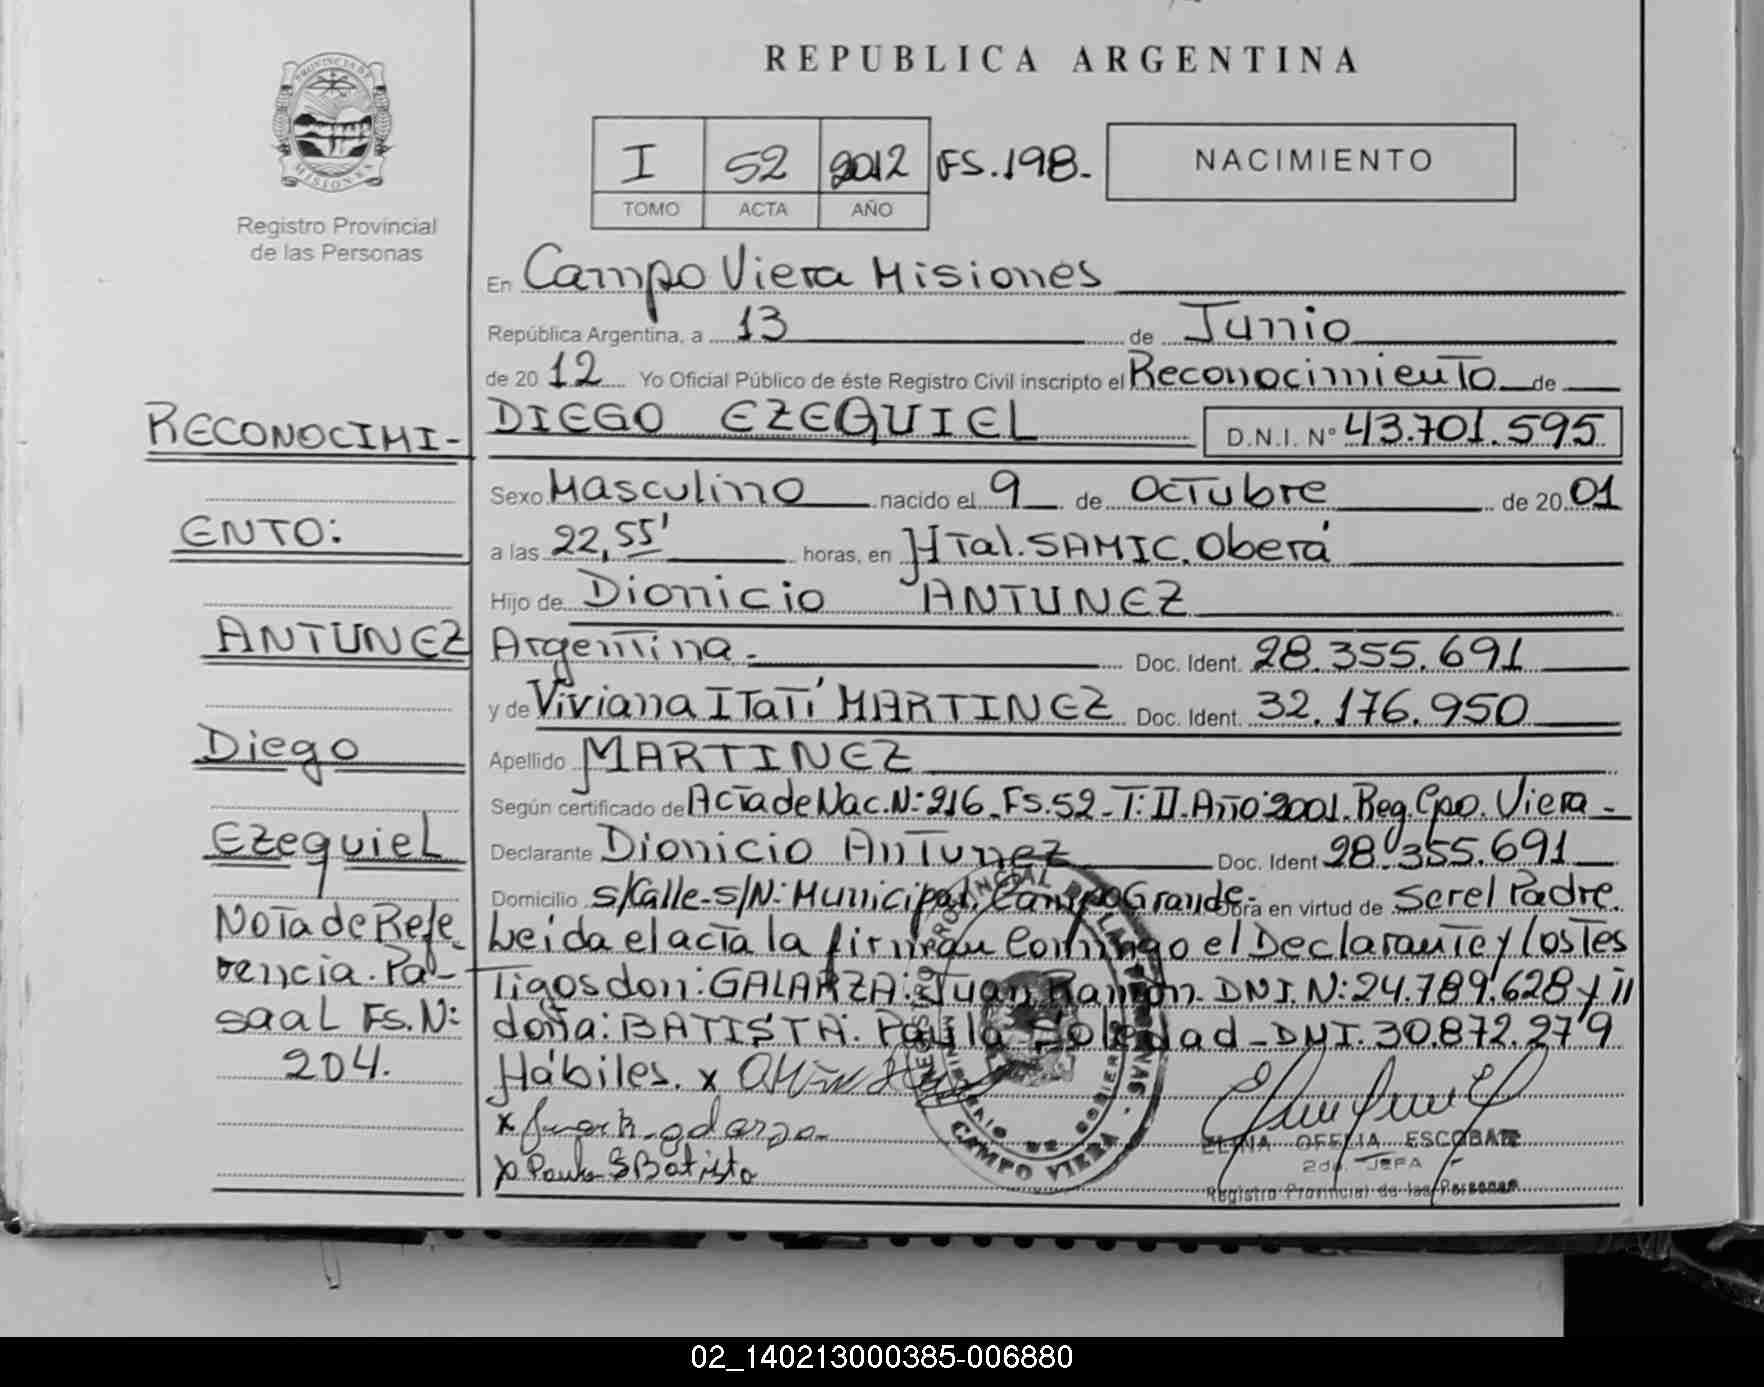 REPUBLICA ARGENTINA
PROVINCIA DE MISIONES
Registro Provincial
de las Personas
I 52 2012 FS.198.
TOMO ACTA AÑO
NACIMIENTO
En Campo Viera Misiones
República Argentina, a 13 de Junio
de 20 12 Yo Oficial Público de éste Registro Civil inscripto el Reconocimiento de
DIEGO EZEQUIEL D.N.I. Nº 43.701.595
Sexo Masculino nacido el 9 de Octubre de 20 01
a las 22,55' horas, en HTal. SAMIC. Oberá
Hijo de Dionicio ANTUNEZ
Argentina. Doc. Ident. 28.355.691
y de Viviana ITaTí MARTINEZ Doc. Ident. 32.176.950
Apellido MARTINEZ
Según certificado de Acta de Nac. N: 216_Fs.52_T: II. Año: 2001. Reg. Cpo. Viera-
Declarante Dionicio Antunez Doc. Ident 28.355.691
Domicilio s/Calle-s/N: Municipal, Campo Grande- Obra en virtud de Ser el Padre.
Leida el acta la firman Conmigo el Declarante y los Tes
Tigos don: GALARZA: Juan Ramon. DNI. N: 24.789.628 y
doña: BATISTA: Paula Soledad_DNI. 30.872.279
Hábiles. x
x
x Paula S Batista
RECONOCIMI-
ENTO:
ANTUNEZ
Diego
Ezequiel
Nota de Refe-
rencia. Pa-
sa al Fs. N:
204.
CAMPO VIERA
ELENA OFELIA ESCOBAR
2da. JEFA
Registro Provincial de las Personas
02_140213000385-006880